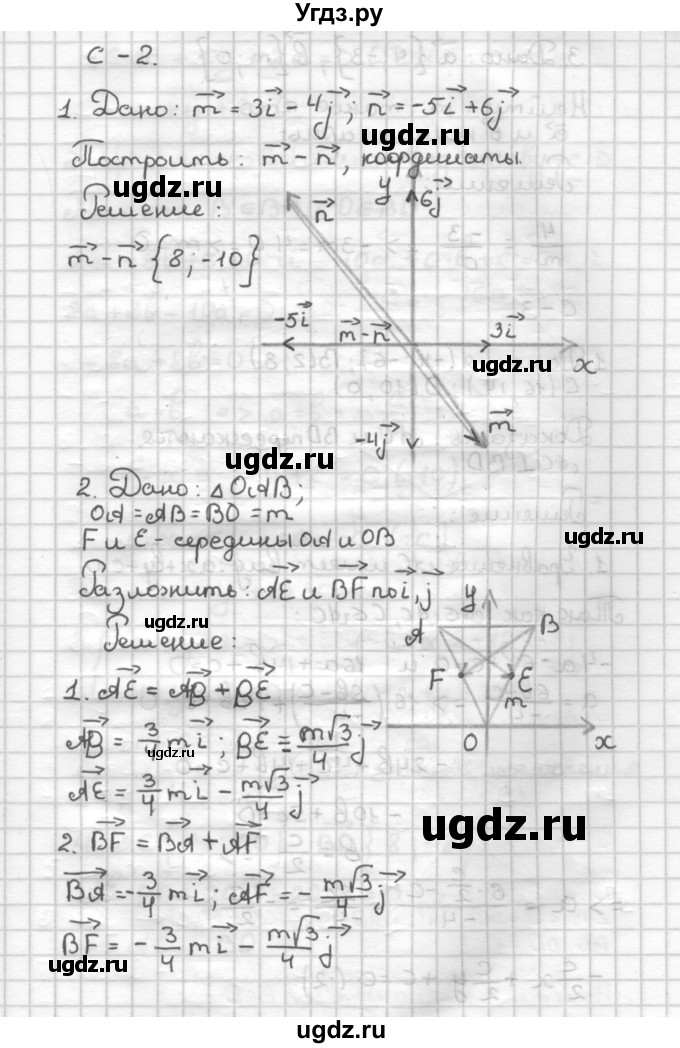 Угдз.ру
С-2.
1. Дано: m = 3i - 4j; n = -5i + 6j
ugdz.ru
Построить: m - n, координаты.
ugdz.ru
Решение:
m - n {8; -10}
y
6j
n
-5i
m - n
3i
ugdz.ru
x
m
-4j
ugdz.ru
2. Дано: △OAB;
OA = AB = BO = m
F и E - середины OA и OB
ugdz.ru
Разложить: AE и BF по i, j
ugdz.ru
Решение:
y
A
B
F
E
m
O
x
1. AE = AB + BE
AB = 3/4 mi; BE = m√3/4 j
ugdz.ru
AE = 3/4 mi - m√3/4 j
ugdz.ru
2. BF = BA + AF
BA = -3/4 mi; AF = - m√3/4 j
BF = - 3/4 mi - m√3/4 j
ugdz.ru
ugdz.ru
ugdz.ru